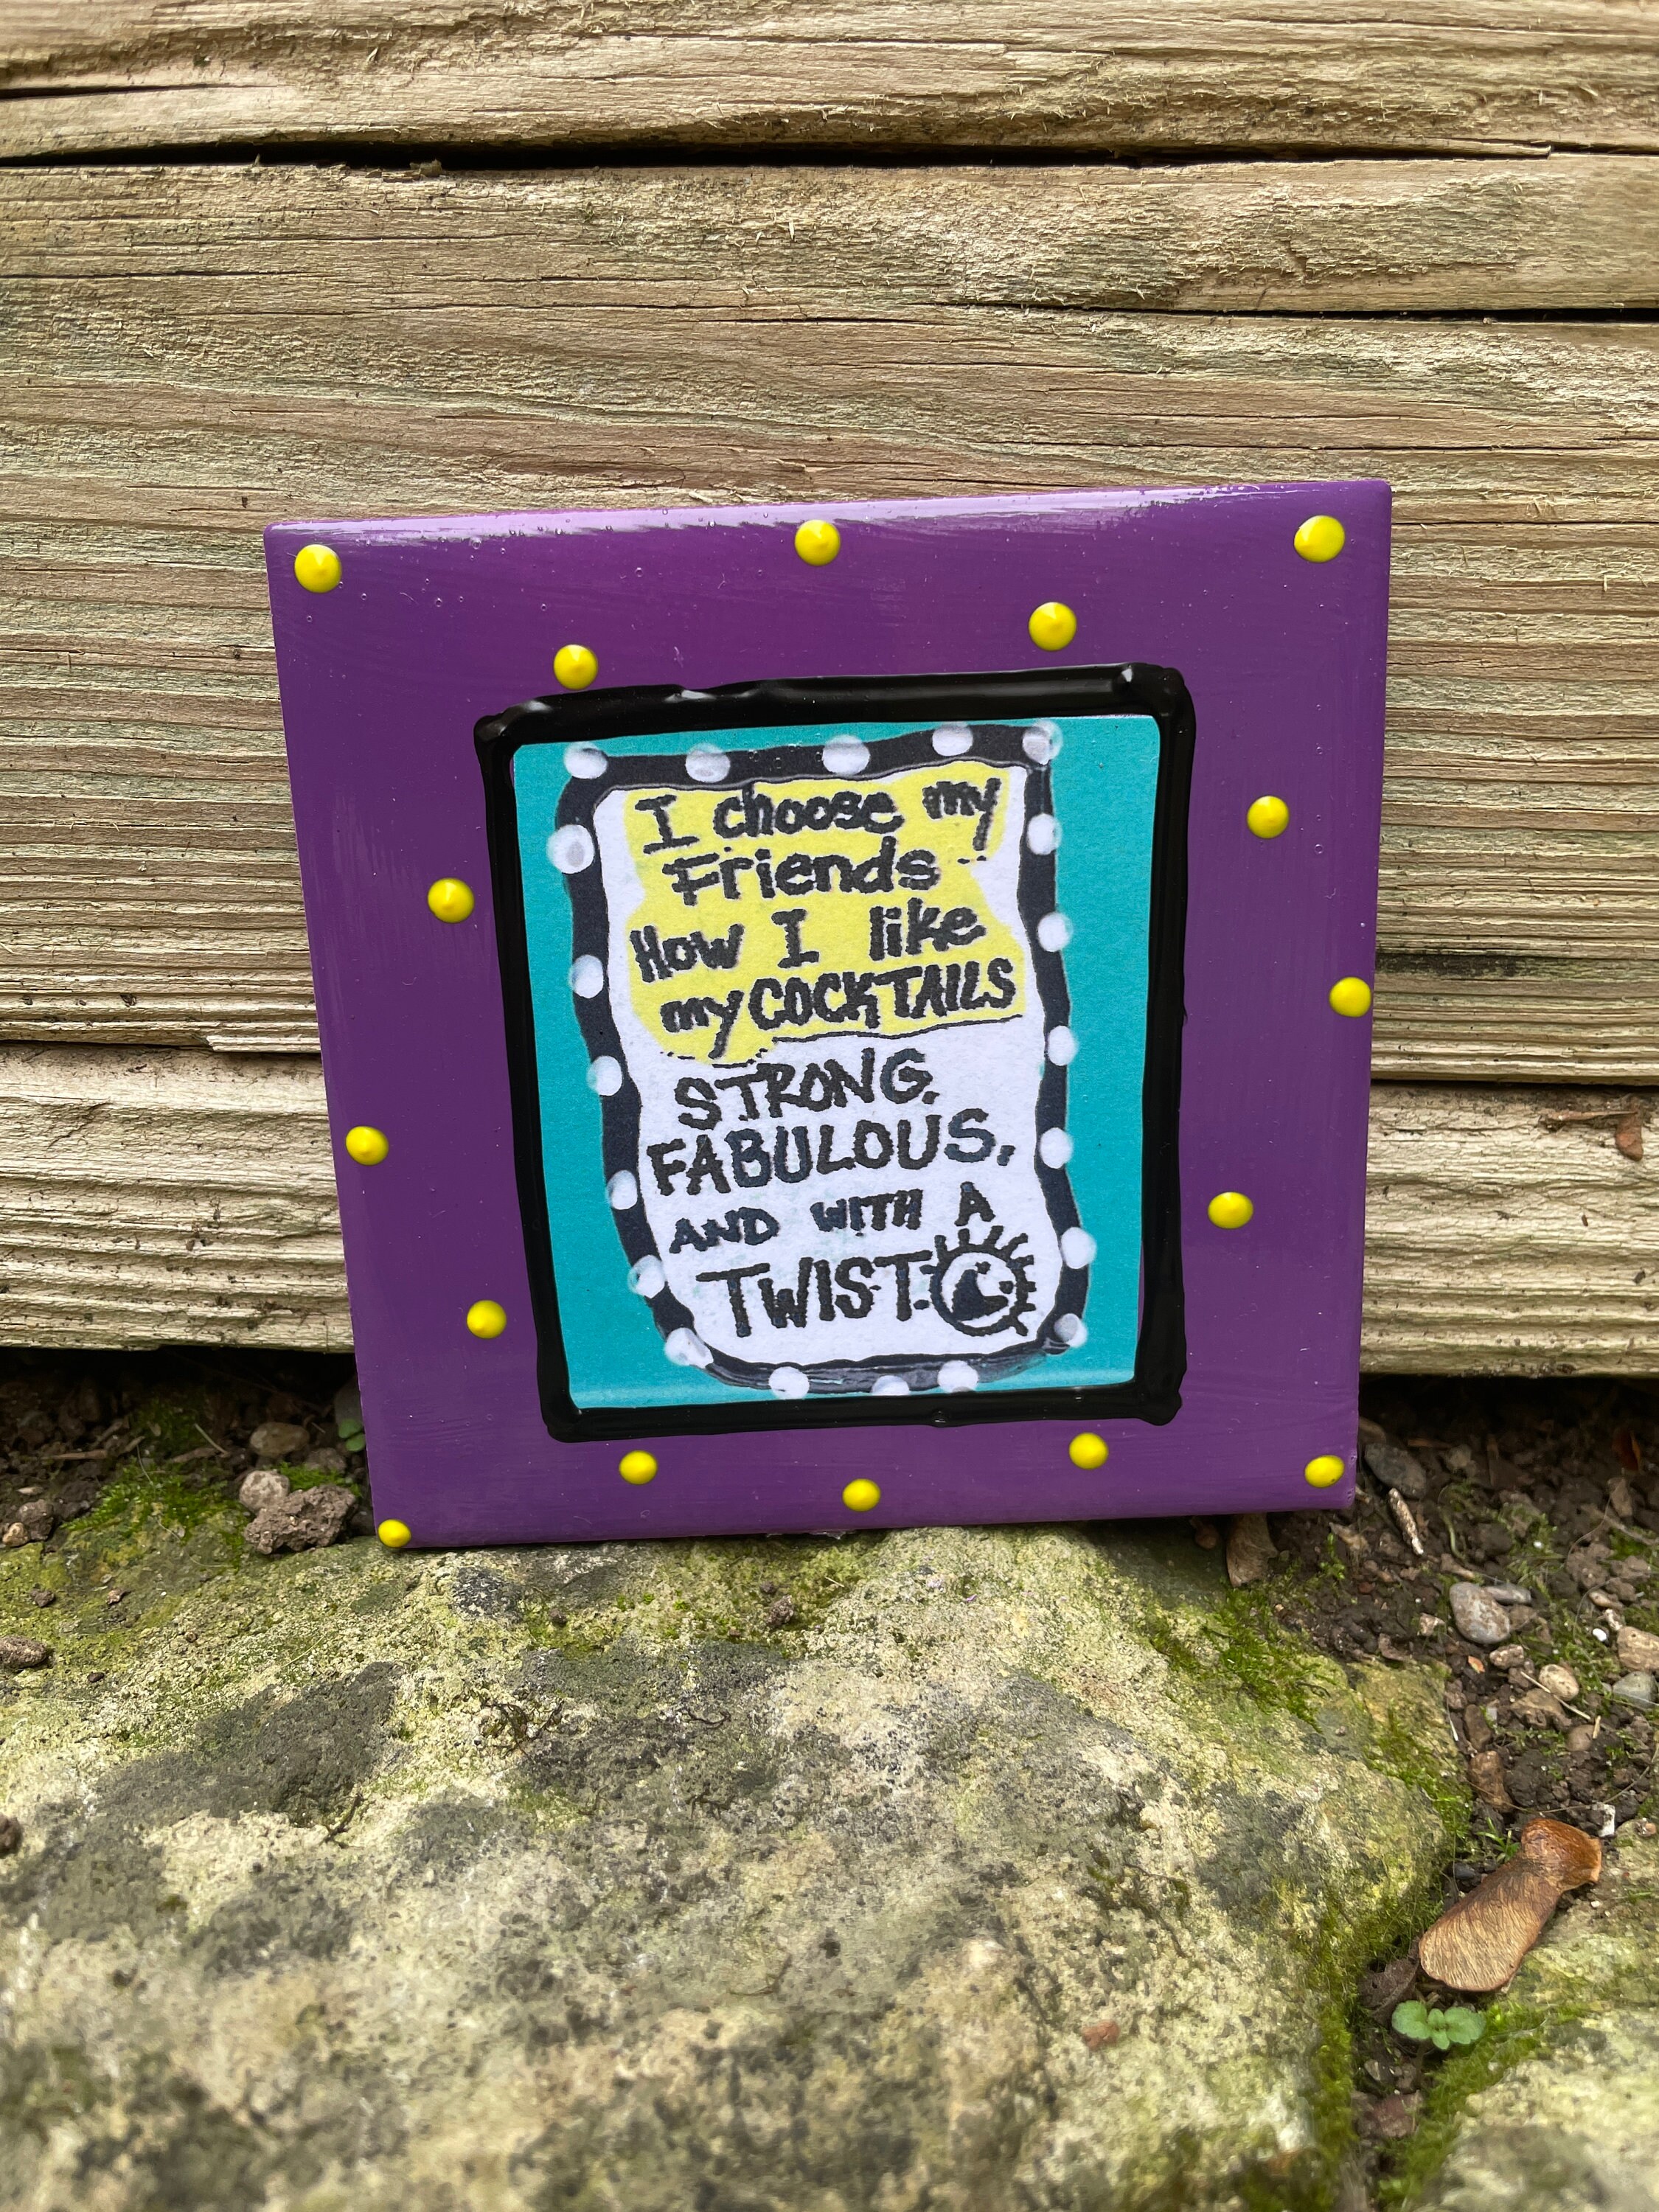 I choose my
Friends
How I like
my COCKTAILS
STRONG,
FABULOUS,
AND WITH A
TWIST